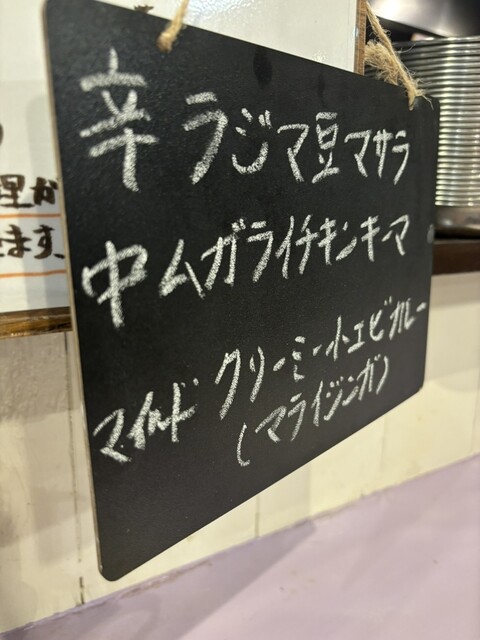 辛 ラジマ豆マサラ
中 ムガライチキンキーマ
マイルド クリーミー小エビカレー
(マライジンガ)
理が
ます